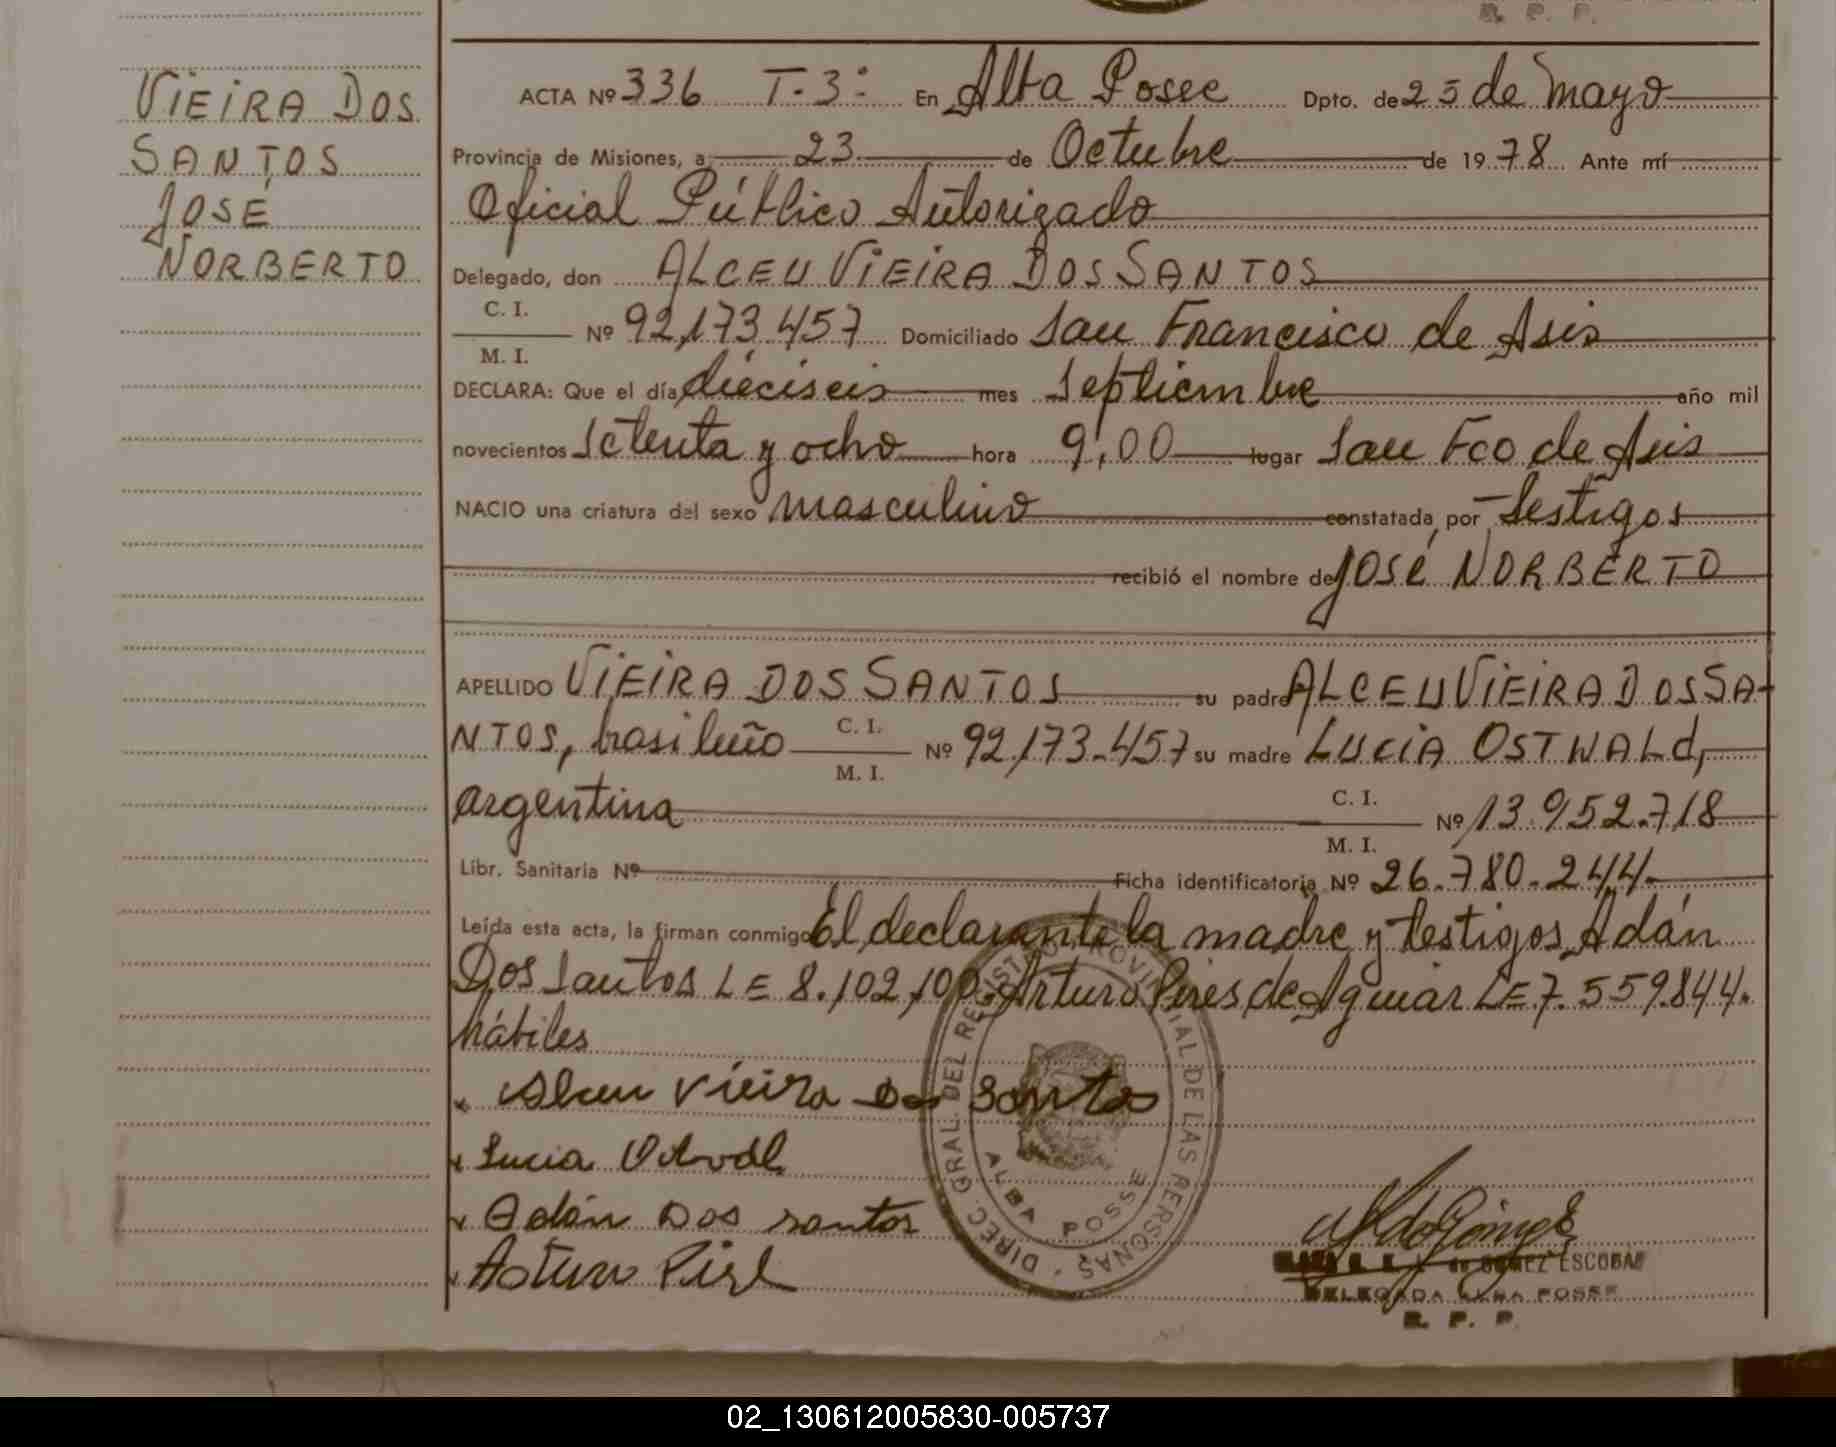 R. P. P.
VIEIRA DOS
SANTOS
JOSÉ
NORBERTO
ACTA Nº 336 T-3º En Alba Posee Dpto. de 25 de Mayo
Provincia de Misiones, a 23 de Octubre de 1978 Ante mí
Oficial Público Autorizado
Delegado, don ALCEU VIEIRA DOS SANTOS
C. I.
M. I.
Nº 92,173.457 Domiciliado San Francisco de Asis
DECLARA: Que el día dieciseis mes Septiembre año mil
novecientos Setenta y ocho hora 9,00 lugar San Fco de Asis
NACIO una criatura del sexo masculino constatada por Testigos
recibió el nombre de JOSÉ NORBERTO
APELLIDO VIEIRA DOS SANTOS su padre ALCEU VIEIRA DOS SA-
NTOS, brasileño C. I. M. I. Nº 92,173.457 su madre LUCIA OSTWALd,
argentina C. I. M. I. Nº 13.952.718
Libr. Sanitaria Nº Ficha identificatoria Nº 26.780.244.
Leída esta acta, la firman conmigo El declarante la madre y testigos Adán
Dos Santos LE 8.102,100. Arturo Pires de Aguiar LE 7.559.844.
hábiles
Alceu Vieira Dos Santos
Lucia
Adán Dos santos
Arturo
DIREC. GRAL. DEL REGISTRO PROVINCIAL DE LAS PERSONAS
ALBA POSSE
de GOMEZ ESCOBAR
DELEGADA ALBA POSSE
R. P. P.
02_130612005830-005737